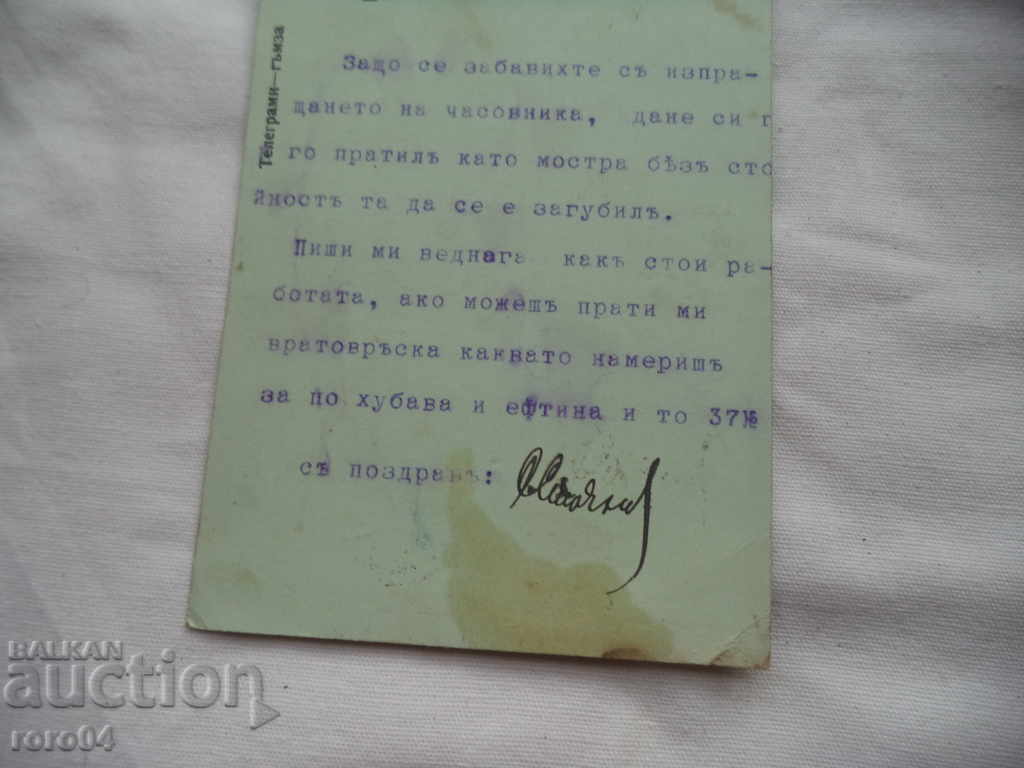 Телеграми—гъмза
Защо се забавихте съ изпра-
щането на часовника, дане си г
го пратилъ като мостра бѣзъ сто
йность та да се е загубилъ.
Пиши ми веднага какъ стои ра-
ботата, ако можешъ прати ми
вратоврѣска каквато намеришъ
за по хубава и ефтина и то 37½
съ поздравъ:
BALKAN
auction
roro04